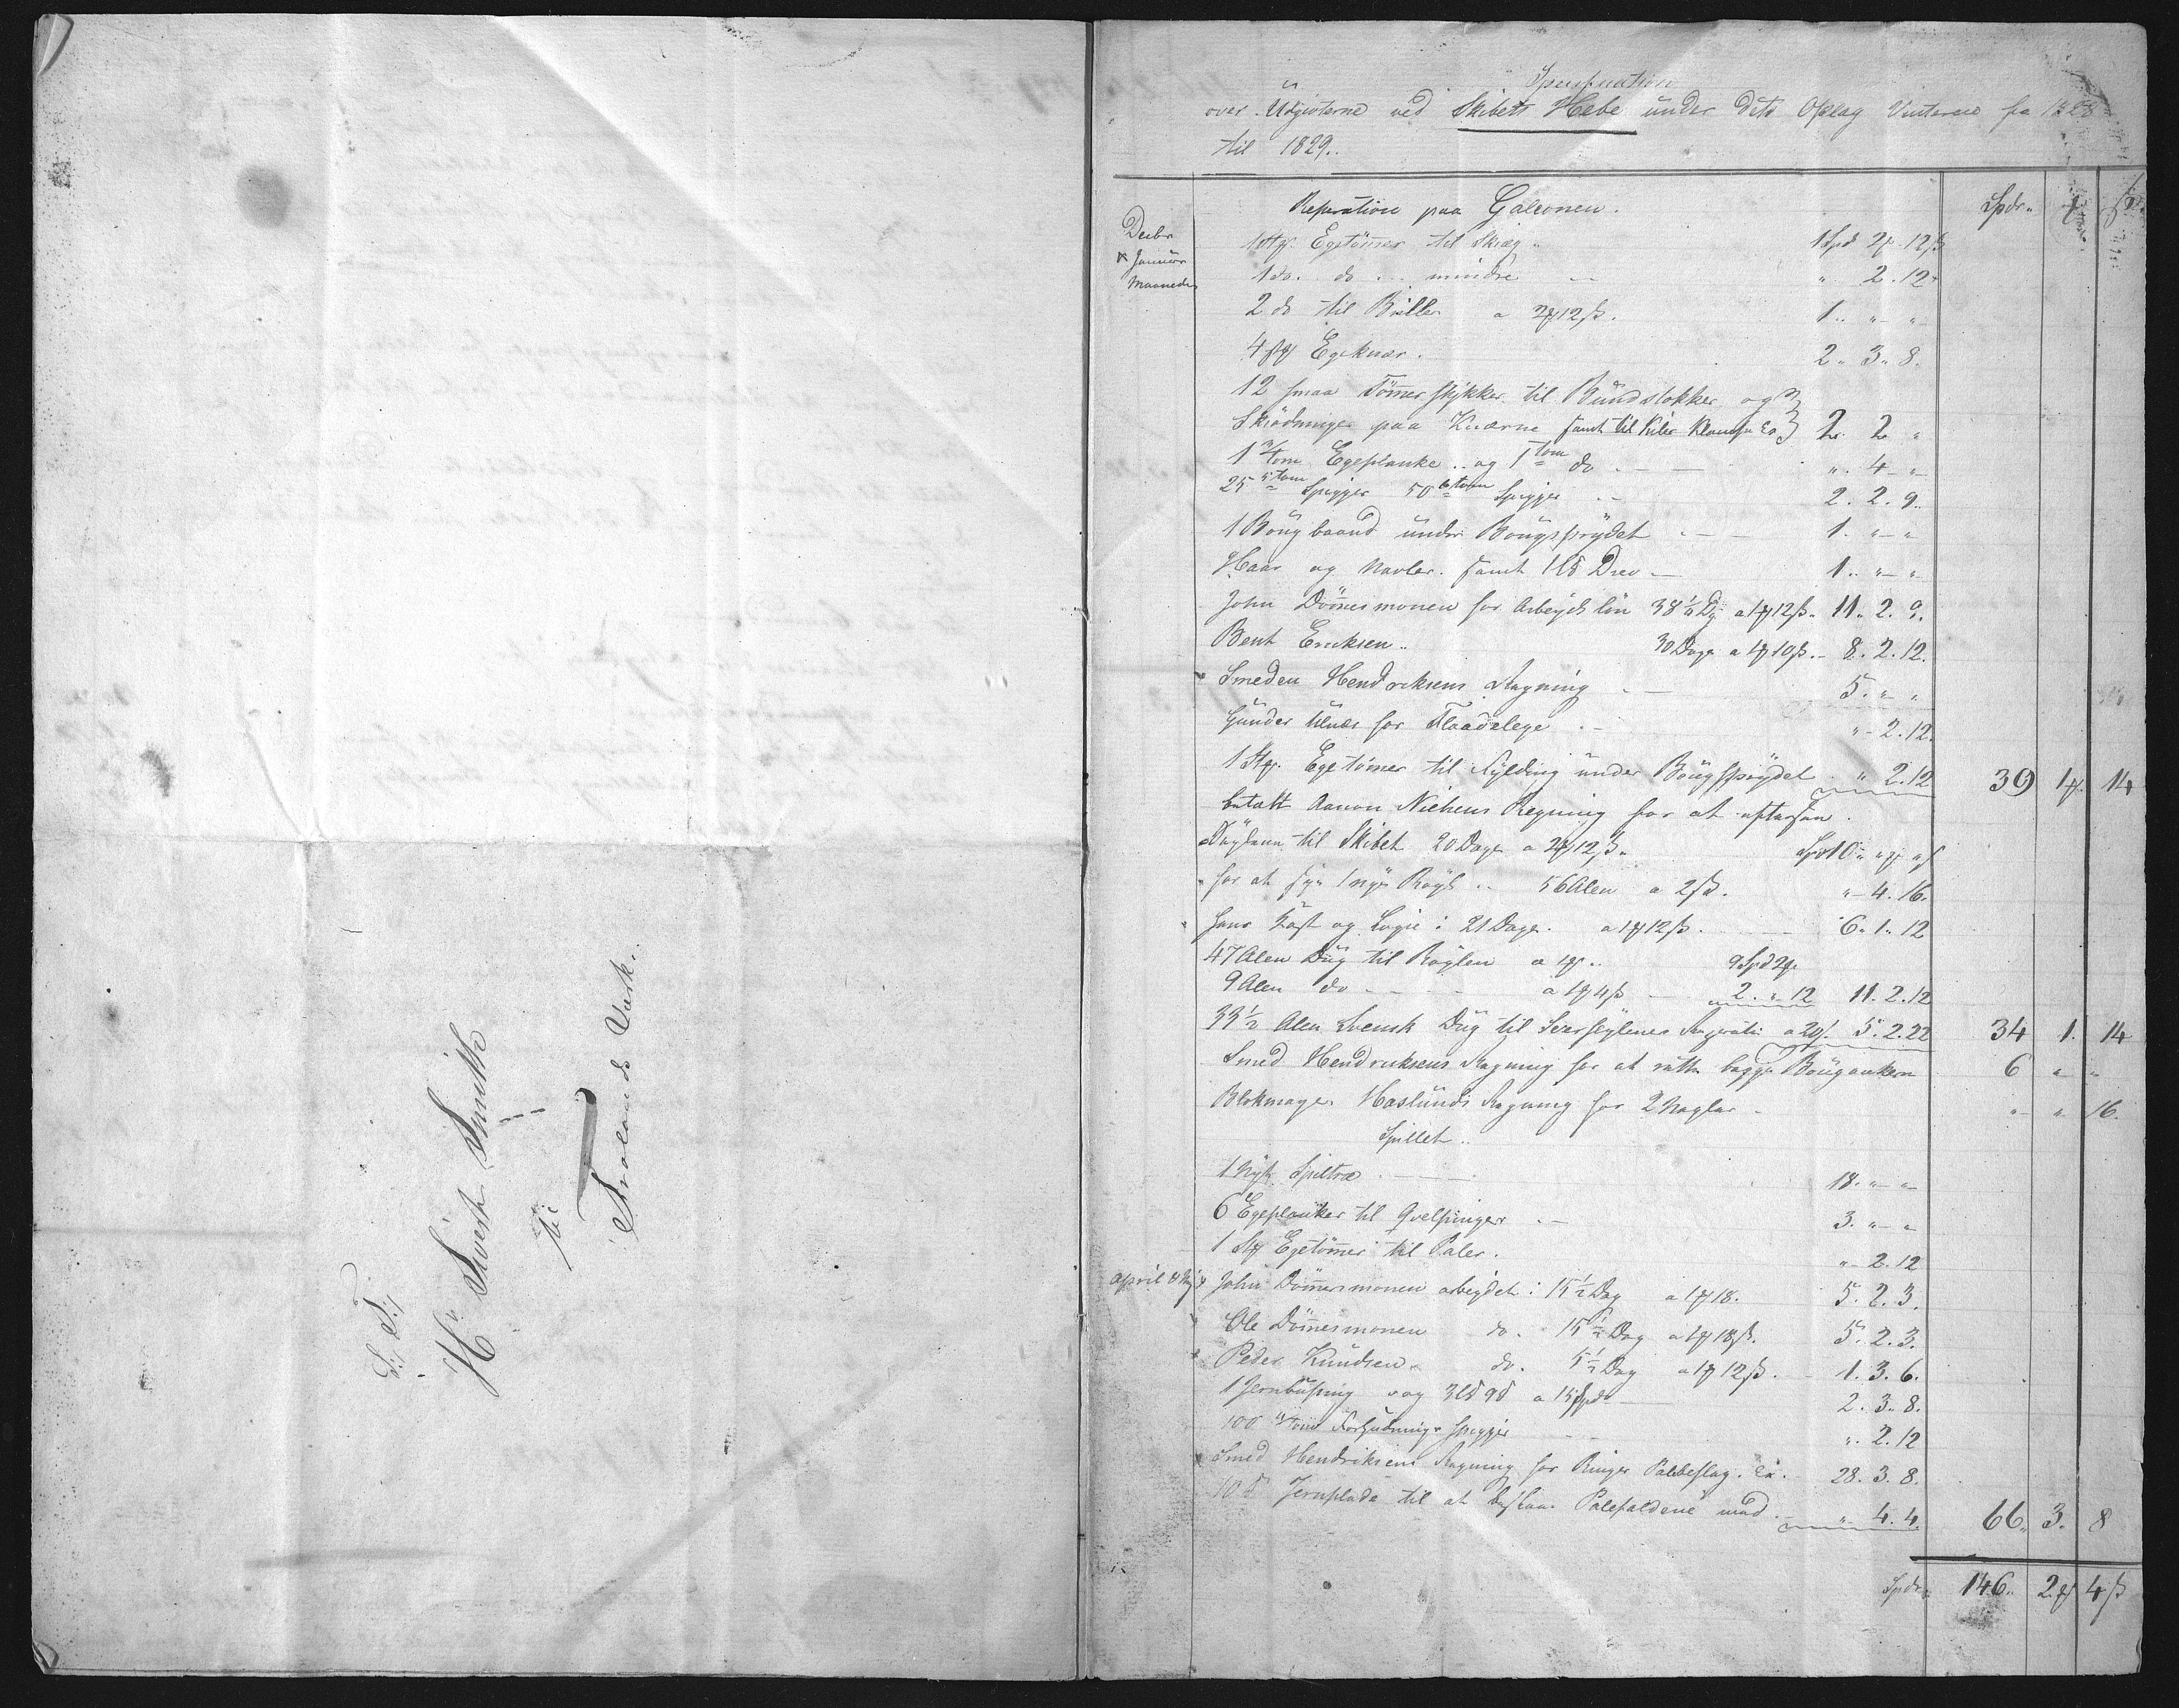 S: T:
Hr Sivert Smith
til
Frolands Værk.
Specification
over Udgivterne ved Skibets Hebe under dets Oplag Vinteren fra 1828
til 1829..
Spdr
Reparation paa Galeonen.
Decbr
& Januar
Maaneder
1 Stk. Egetömer til Skiæg .. 1 Spd 2 . 12 ß
1 do. do ... mindre - - " 2.12 "
2 do til Briller a 2 12 ß. 1 .. " - " -
4 Stk Egeknær. 2 " 3 " 8.
12 smaa Tömerstykker til Bundstokker og
Skrådninger paa Knærne samt til Kiler 2. 2 "
1 3/4 tom Egeplanke .. og 1 tom do - - " . 4 - "
25 5 tom Spigger 50 6 tom Spigger - - 2. 2. 9..
1 Bougbaand under Bougsprydet - - 1. " - "
Haar og Navler. samt 1 Drev - 1.. " - "
John Dömesmonen for Arbeyds lön 38 1/2 Dg a 1 12 ß. 11. 2. 9.
Bent Ericksen.. 30 Dage a 1 10 ß. - 8. 2. 12.
Smeden Hendriksens Regning - - 5. " "
Gunder for Flaadeleye - - " - 2.12.
1 Stk. Egetömer til Fylding under Bougsprydet " 2.12 39 1 14
betalt Aanon Nielsens Regning for at efterse
Seylene til Skibet 20 Dage a 2 12 ß. Spd 10 " "
for at sye 1 nye Röyl .. 56 Alen a 2 ß. " - 4. 16.
hans Kost og Logie i 21 Dage. a 1 12 ß. 6. 1. 12
47 Alen Dug til Röylen a 1 .. 9 Spd 2
9 Alen do - - - a 1 4 ß - 2. " . 12 11. 2. 12
33 1/2 Alen Svensk Dug til Seylenes Reparati a 20 ß. 5. 2. 22 34 1. 14
Smed Hendriksens Regning for at rætte begge Bougankern 6 " "
Blokmager Haslunds Regning for 2 Naglar - " - " 16.
Spillet..
1 Nyt Spiltræ - - 18. " - "
6 Egeplanker til Qvelpinger - - 3. " - "
1 Stk Egetömer til Paler. " - 2. 12
April & May John Dömesmonen arbeydet i 15 1/2 Dag a 1 18. 5. 2. 3.
Ole Dömesmonen do. 15 1/2 Dag a 1 18 ß. 5. 2. 3.
Peder Knudsen do. 5 1/2 Dag a 1 12 ß. - 1. 3. 6.
1 Jernbusning vog 3 9 a 15 Spd - 2. 3. 8.
100 4 tom Forhudnings Spigger - - " . 2. 12
Smed Hendriksens Regning for Ringer Palbeslag. 28. 3. 8.
10 Jernplade til at beslaae Palefaldene med - " - 4. 4. 66. 3. 8
Spdr 146.. 2 4 ß